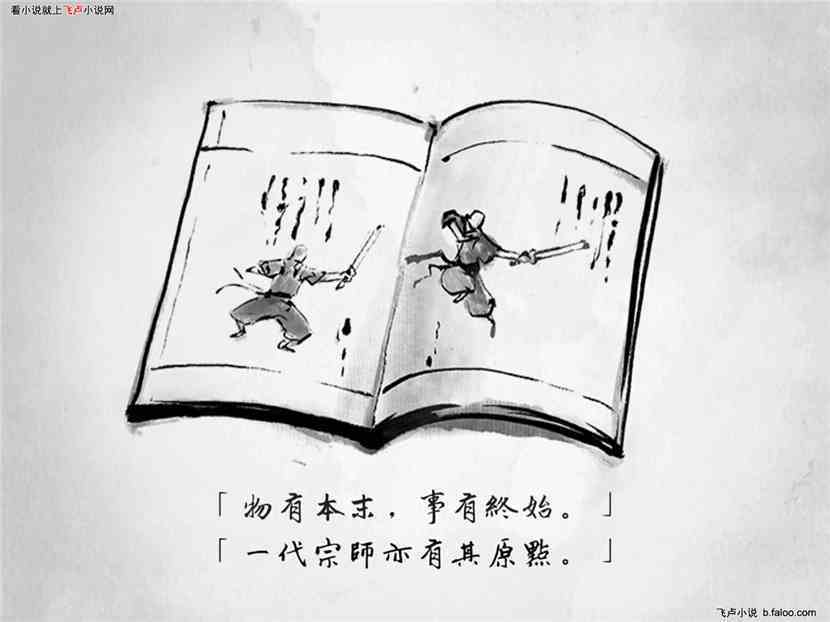 看小说就上飞卢小说网
「物有本末，事有終始。」
「一代宗師亦有其原點。」
飞卢小说 b.faloo.com